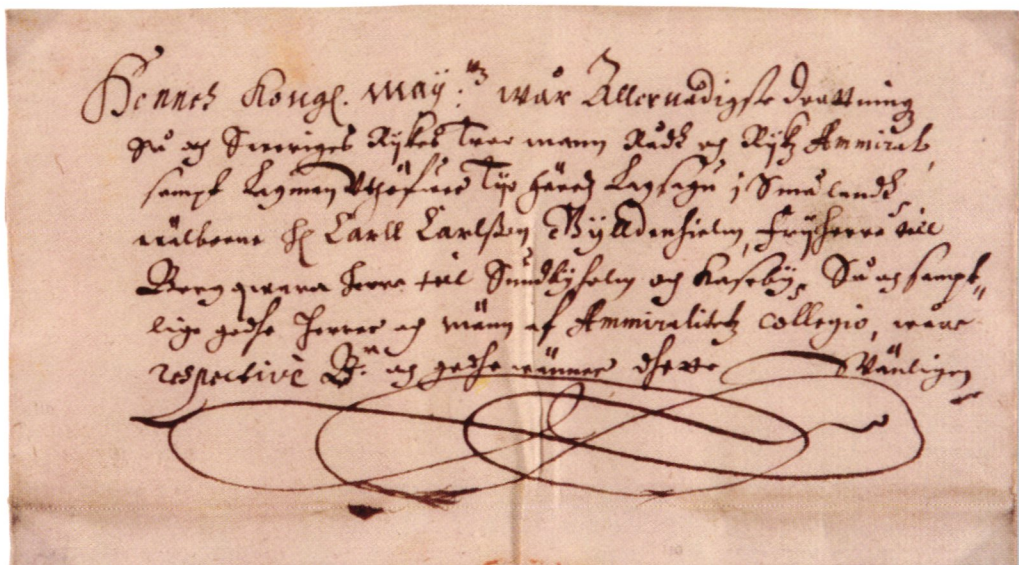 Hennes Kongl. May:tz wår Allernådigste drottning
Så och Sweriges Rykes Troo mann Rådh och Rykz Ammiral,
sampt Lagman Vthöfuer Tyo häredz Lagsagu j Smålandh,
wälborne H Carll Carlsson Gÿlldenhielm, Fryherre till
Bergqwara herre till Sundbyholm och Kaseby, Så och sampt„
lige gode Herrar och Männ af Ammiralitetz Collegio, wåre
respectivè B.r och gode wänner dhette Wänligen